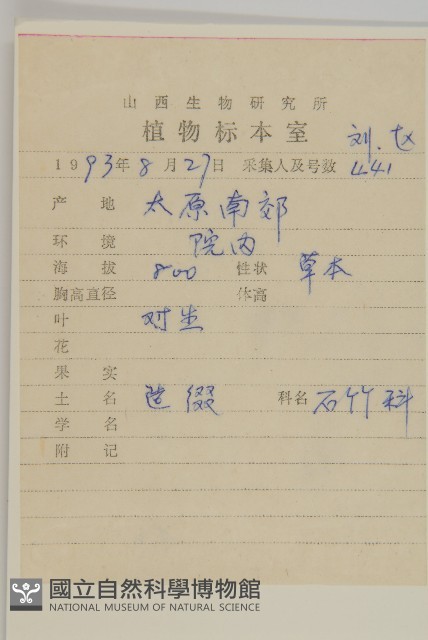 山西生物研究所
植物标本室
刘.赵
1993年8月27日 采集人及号数 441
产地 太原南郊
环境 院内
海拔 800 性状 草本
胸高直径 体高
叶 对生
花
果实
土名 缀 科名 石竹科
学名
附记
國立自然科學博物館
NATIONAL MUSEUM OF NATURAL SCIENCE